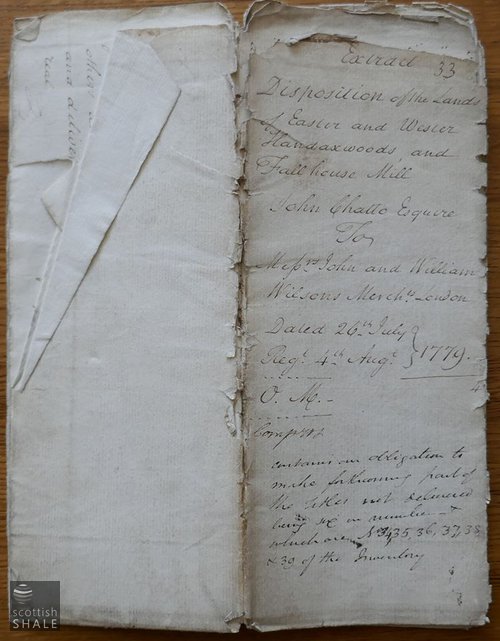 Extract 33
Disposition of the Lands
of Easter and Wester
Handaxwoods and
Fallhouse Mill
John Chatto Esquire
To
Messrs John and William
Wilsons Merchts London
Dated 26th July
Regt 4th Augt } 1779.
O. M. -
contains an obligation to
make forthcoming part of
the titles not delivered
being six in number &
which are No 34, 35, 36, 37, 38
& 39 of the Inventory
and
scottish
SHALE